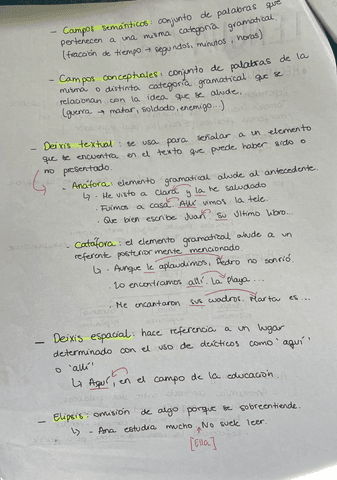 - Campos semánticos: conjunto de palabras que
pertenecen a una misma categoría gramatical
(fracción de tiempo → segundos, minutos, horas)
- Campos conceptuales: conjunto de palabras de la
misma o distinta categoría gramatical que se
relacionan con la idea que se alude.
(guerra → matar, soldado, enemigo...)
- Deixis textual: se usa para señalar a un elemento
que se encuentra en el texto que puede haber sido o
no presentado.
- Anáfora: elemento gramatical alude al antecedente.
↳ - He visto a Clara y la he saludado
- Fuimos a casa. Allí vimos la tele.
- Que bien escribe Juan. Su último libro...
- Catáfora: el elemento gramatical alude a un
referente posteriormente mencionado
↳ - Aunque le aplaudimos, Pedro no sonrió.
- Lo encontramos allí. La Playa...
- Me encantaron sus cuadros. Marta es...
- Deixis espacial: hace referencia a un lugar
determinado con el uso de deícticos como 'aquí'
o 'allí'
↳ Aquí, en el campo de la educación.
- Elipsis: omisión de algo porque se sobreentiende.
↳ - Ana estudia mucho. No suele leer.
[Ella]